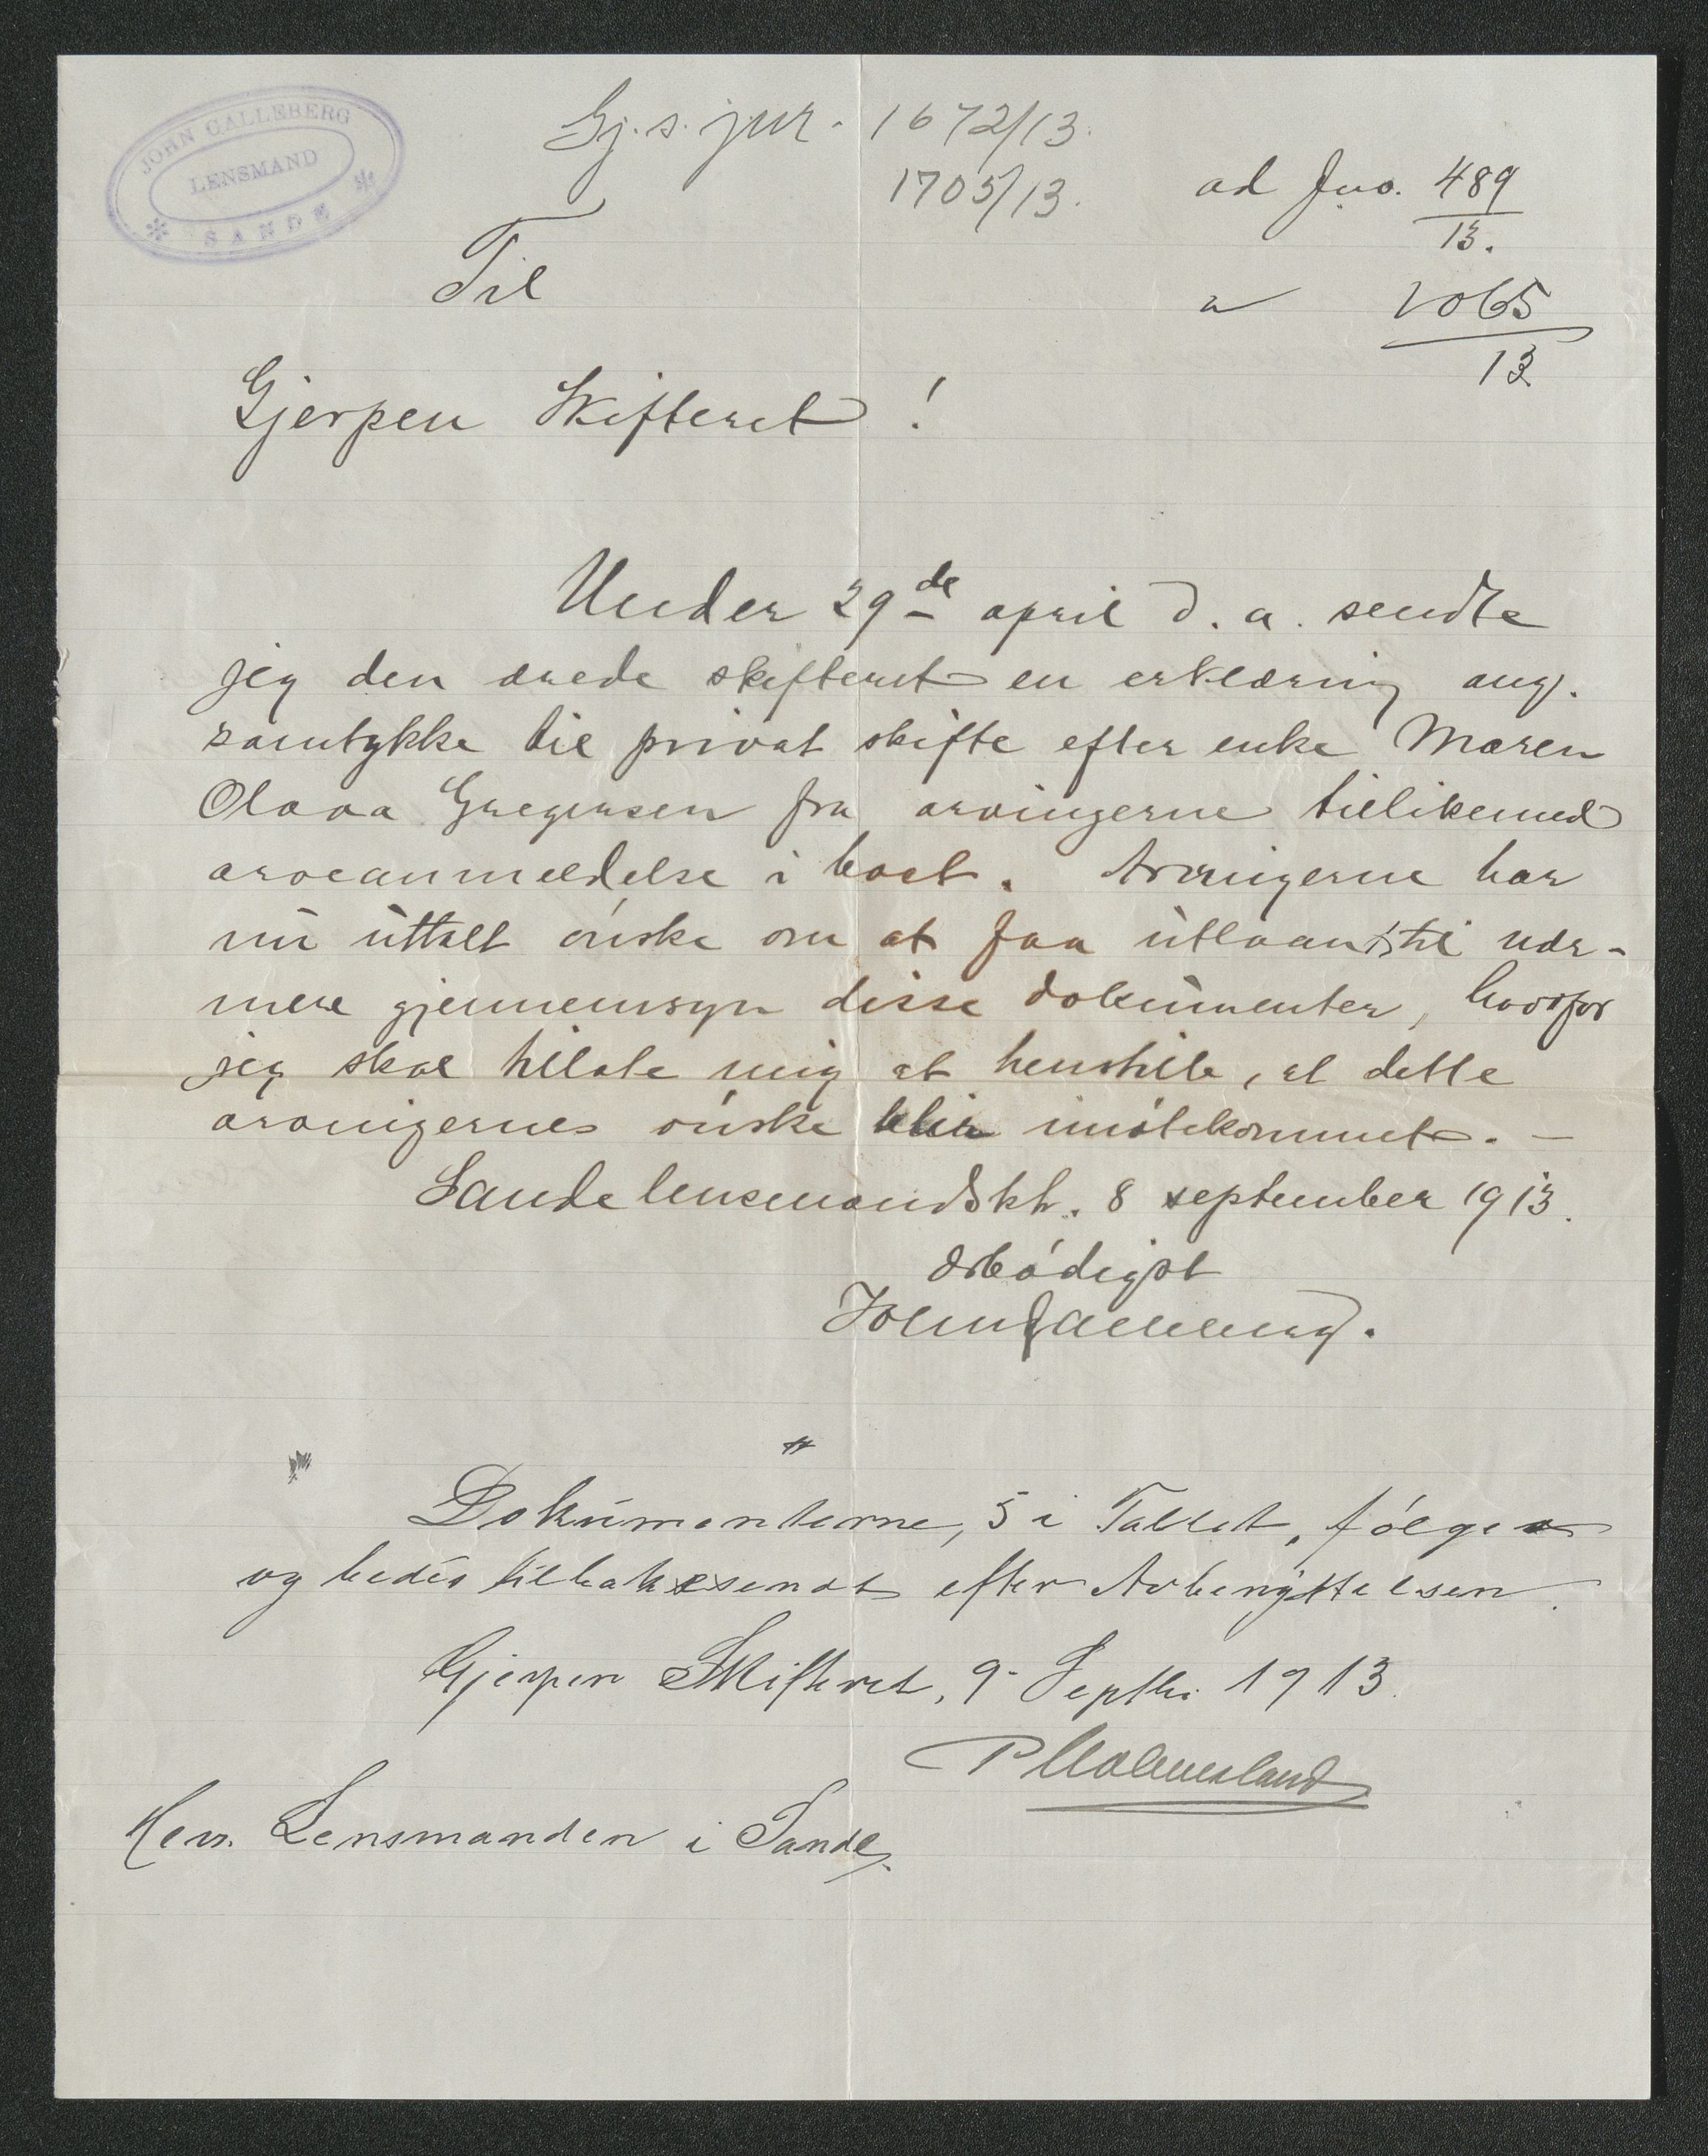 JOHN GALLEBERG
LENSMAND
* SANDE *
Gj. s. jur. 1672/13.
1705/13.
ad Jno. 489
13.
2065
13
Til
Gjerpen Skifteret!
Under 29de april d. a. sendte
jeg den ærede skifteret en erklæring ang.
samtykke til privat skifte efter enke Maren
Olava Gregersen fra arvingerne tillikemed
arveanmeldelse i boet. Arvingerne har
nu uttalt ønske om at faa utlaant til nær-
mere gjennemsyn disse dokumenter, hvorfor
jeg skal tillate mig at henstille, at dette
arvingernes ønske blir imøtekommet. —
Sande lensmandskt. 8 september 1913.
Ærbødigst
John Galleberg.
Dokumenterne, 5 i Tallet, følge
og bedes tilbakesendt efter Avbenyttelsen.
Gjerpen Skifteret, 9 Septbr. 1913.
Herr Lensmanden i Sande.